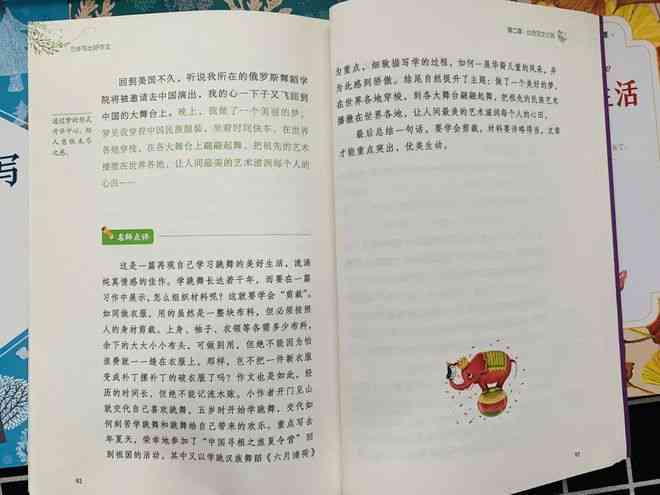 回到美国不久，听说我所在的俄罗斯舞蹈学
院将被邀请去中国演出，我的心一下子又飞回到
中国的大舞台上。晚上，我做了一个美丽的梦，
梦见我穿着中国民族服装，坐着时间快车，在世界
各地穿梭，在各大舞台上翩翩起舞，把祖先的艺术
播撒在世界各地，让人间最美的艺术滋润每个人的
心田……
通过梦的形式
升华中心，给
人意犹未尽
之感。
名师点评
这是一篇再现自己学习跳舞的美好生活，流淌
纯真情感的佳作。学跳舞长达若干年，而要在一篇
习作中展示，怎么组织材料呢？这就要学会“剪裁”。
如同做衣服，用的虽然是一整块布料，但必须按照
人的身材剪裁。上身、袖子、衣领等各需多少布料，
余下的大大小小布头，可做到用，但绝不能因为怕
浪费就一一缝在衣服上。那样，岂不把一件新衣服
变成补丁摞补丁的破衣服了吗？作文也是如此。经
历的时间长，但绝不能记流水账。小作者开门见山
就交代自己喜欢跳舞，五岁时开始学跳舞，交代如
何刻苦学跳舞以及跳舞给自己带来的欢乐。重点写去
年夏天，荣幸地参加了“中国寻根之旅夏令营”回
到祖国的活动，其中又以学跳汉族舞蹈《六月清荷》
第二章
为重点，细致描写学的过程，如何一展华裔儿童的风采，并
为此感到骄傲。结尾自然提升了主题：做了一个美好的梦，
在世界各地穿梭，到各大舞台翩翩起舞，把祖先的民族艺术
播撒在世界各地，让人间最美的艺术滋润每个人的心田。
最后总结一句话，要学会剪裁，材料要详略得当，文章
才能重点突出，优美生动。
生活
写